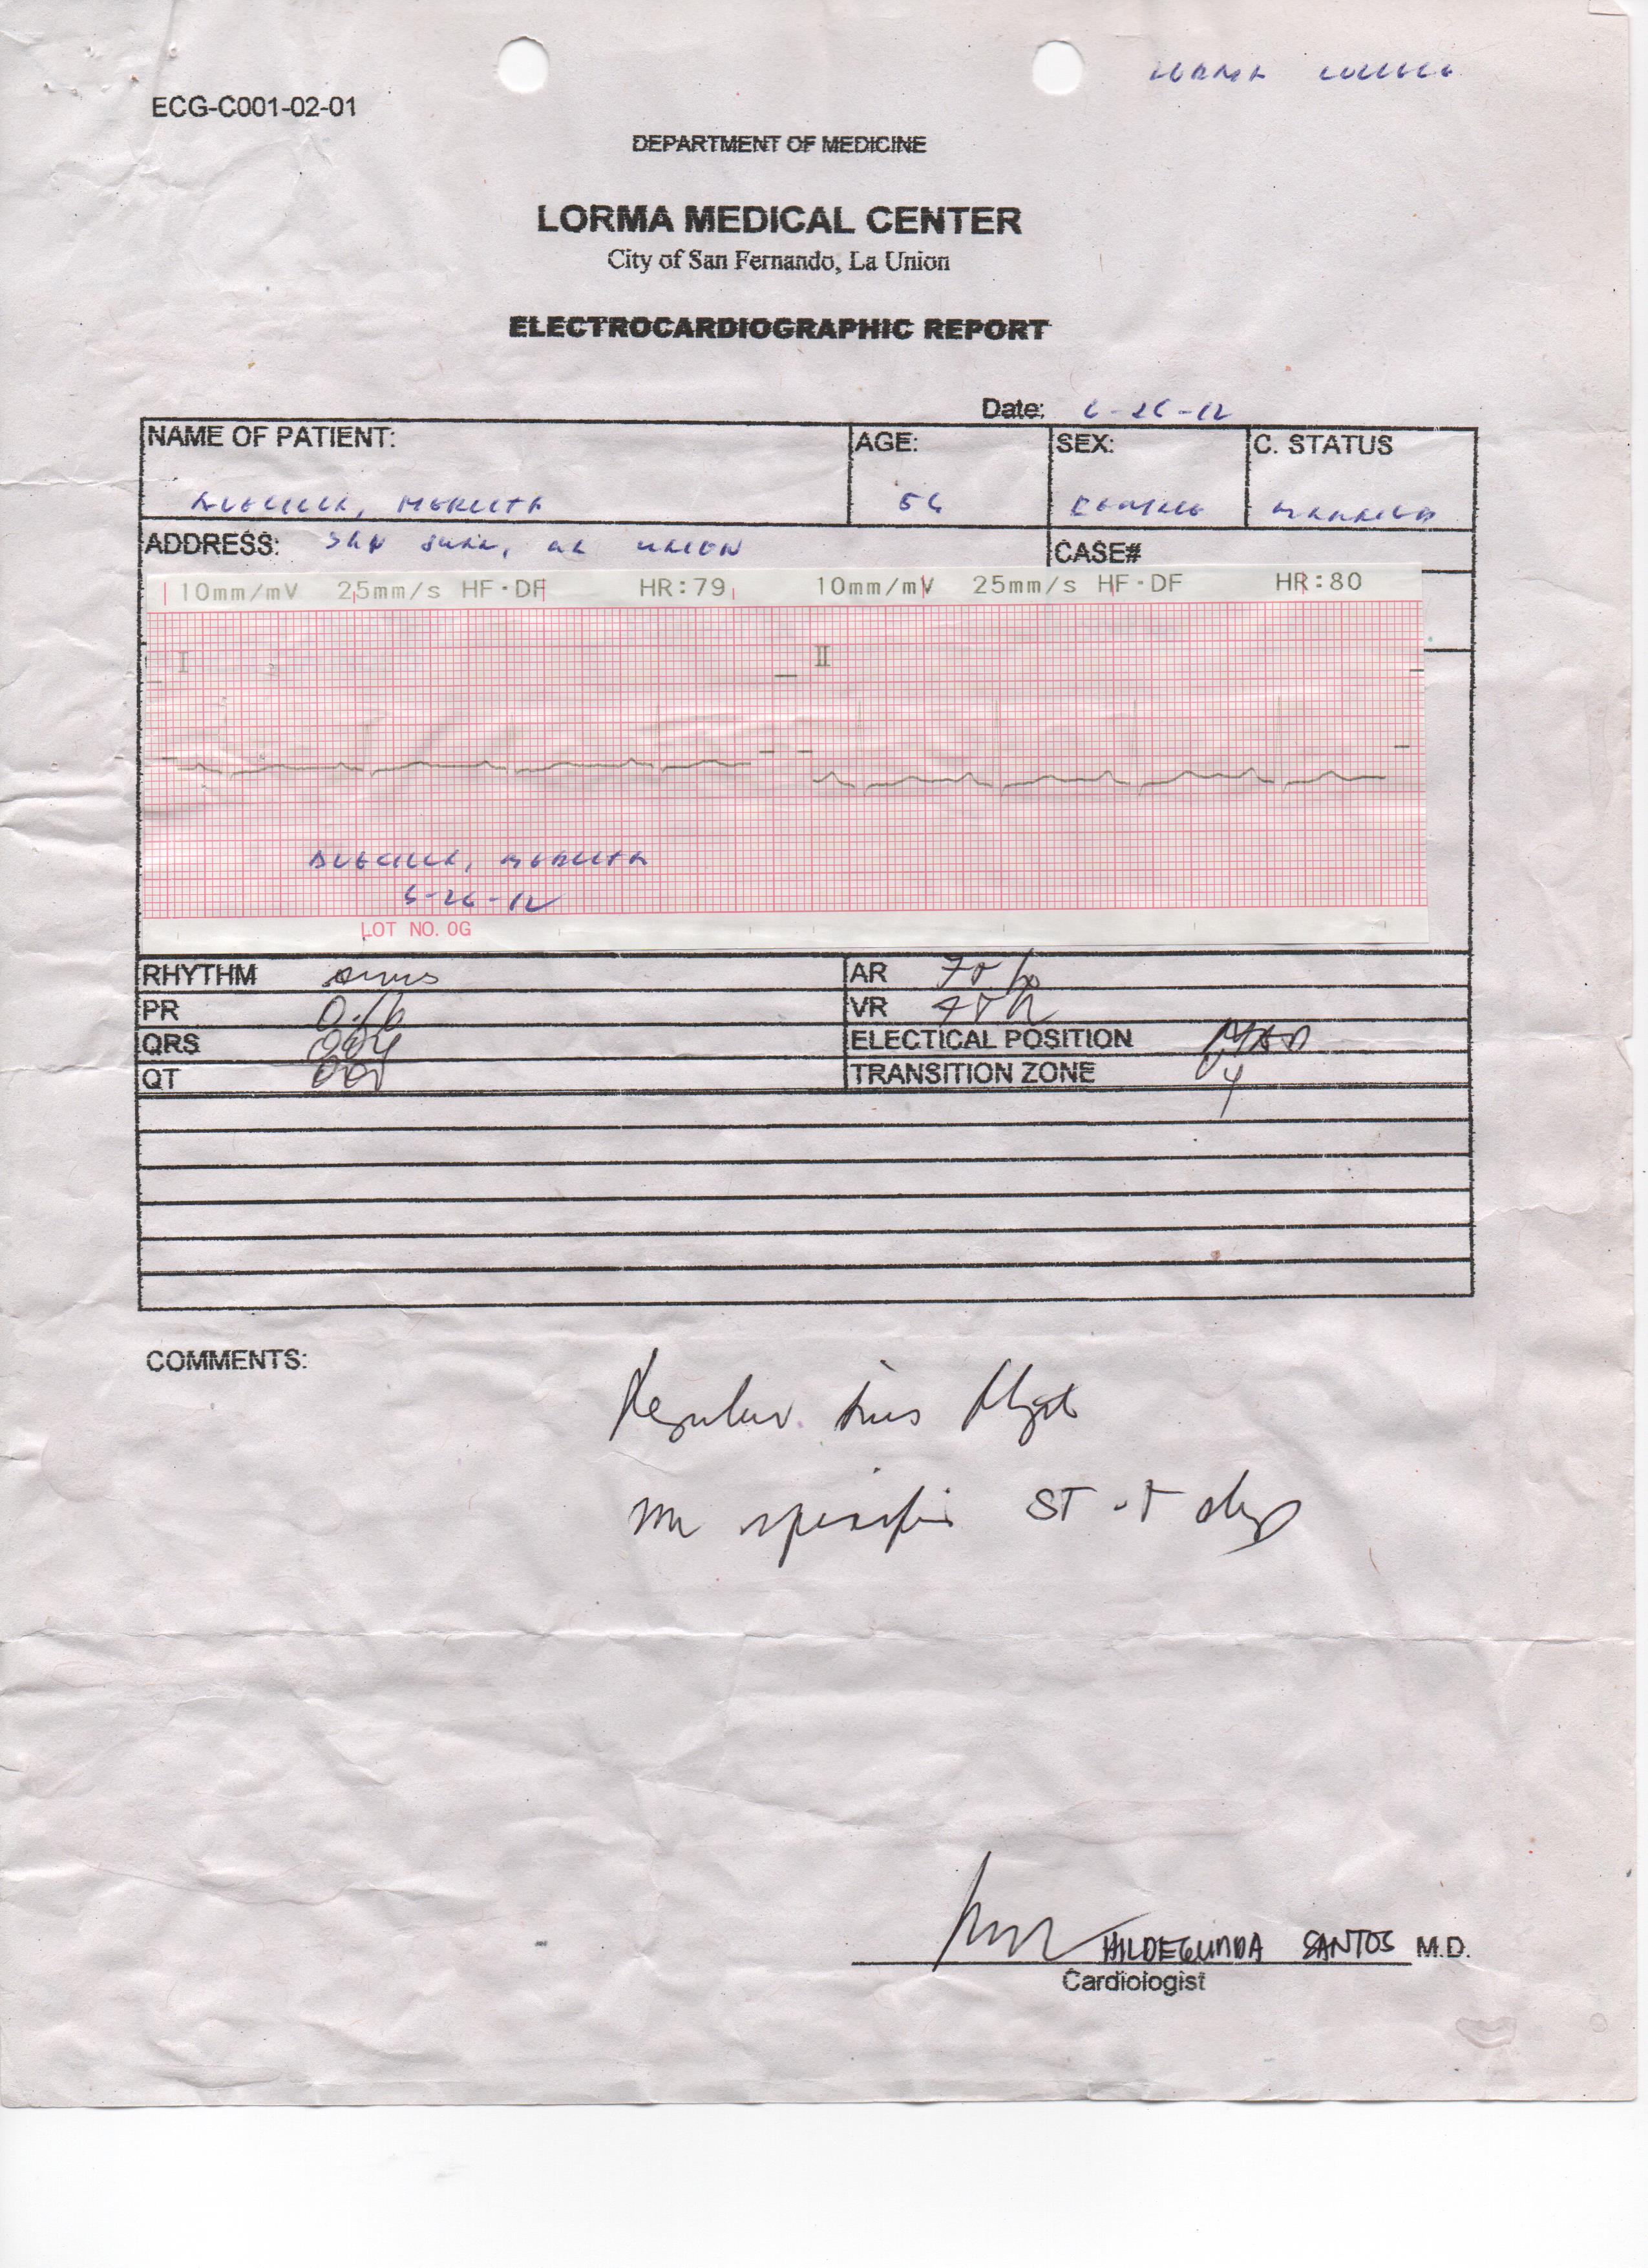 LORMA COLLEGE
ECG-C001-02-01
DEPARTMENT OF MEDICINE
LORMA MEDICAL CENTER
City of San Fernando, La Union
ELECTROCARDIOGRAPHIC REPORT
Date: 6-26-12
NAME OF PATIENT: AGE: SEX: C. STATUS
56 FEMALE MARRIED
ADDRESS: SAN JUAN, LA UNION CASE#
10mm/mV 25mm/s HF·DF HR:79 10mm/mV 25mm/s HF·DF HR:80
I II
6-26-12
LOT NO. 0G
RHYTHM sinus AR
PR 0.16 VR
QRS ELECTICAL POSITION
QT TRANSITION ZONE
COMMENTS:
Regular sinus
specific ST-T
HILDEGUNDA SANTOS M.D.
Cardiologist